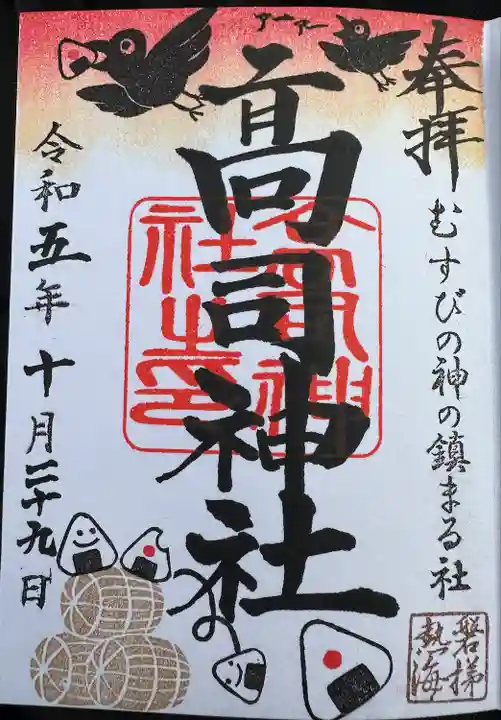 奉拝
むすびの神の鎮まる社
アーアー
高司神社
令和五年十月二十九日
磐梯
熱海